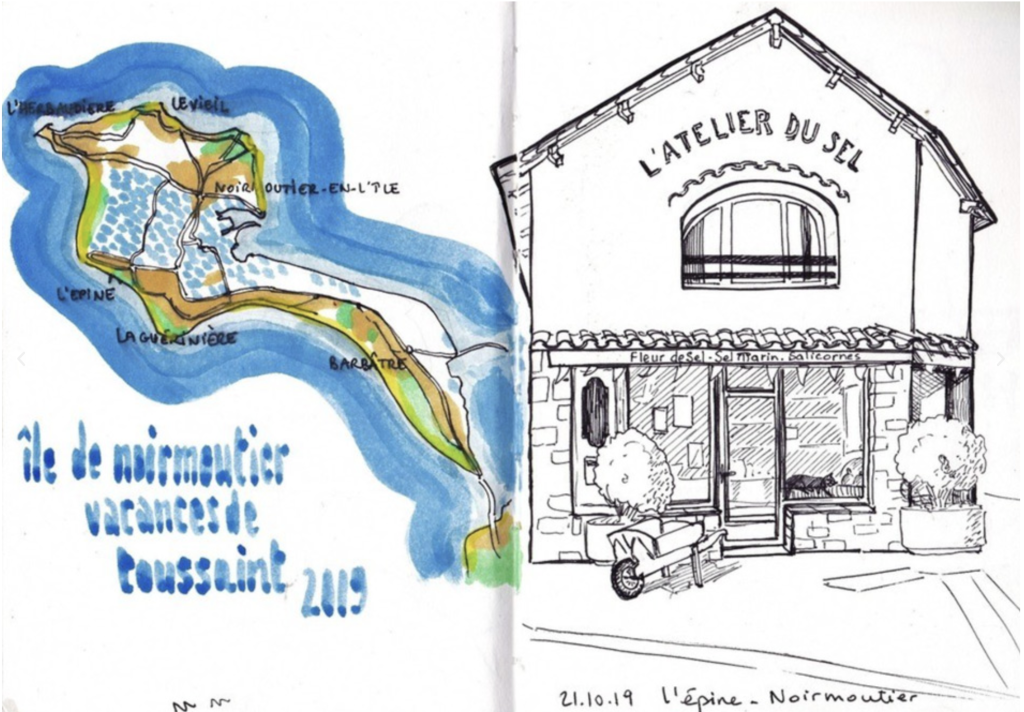 L'HERBAUDIERE
LE VIEIL
NOIRMOUTIER-EN-L'ÎLE
L'EPINE
LA GUÉRINIÈRE
BARBÂTRE
île de noirmoutier
vacances de
toussaint 2019
L'ATELIER DU SEL
Fleur de Sel - Sel Marin. Salicornes
21.10.19 l'épine - Noirmoutier